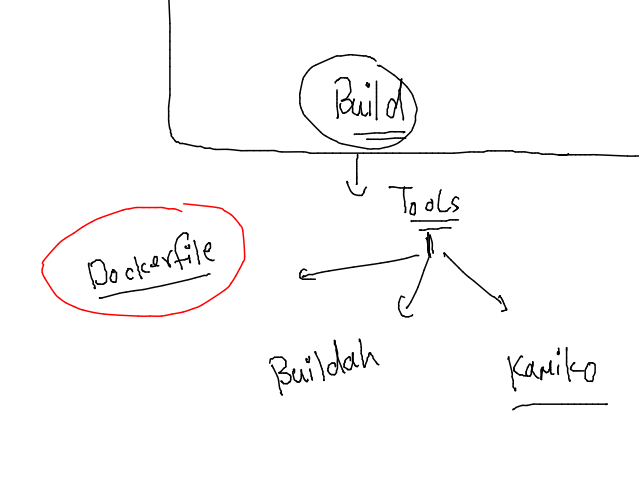 Build
Tools
Dockerfile
Buildah
Kaniko